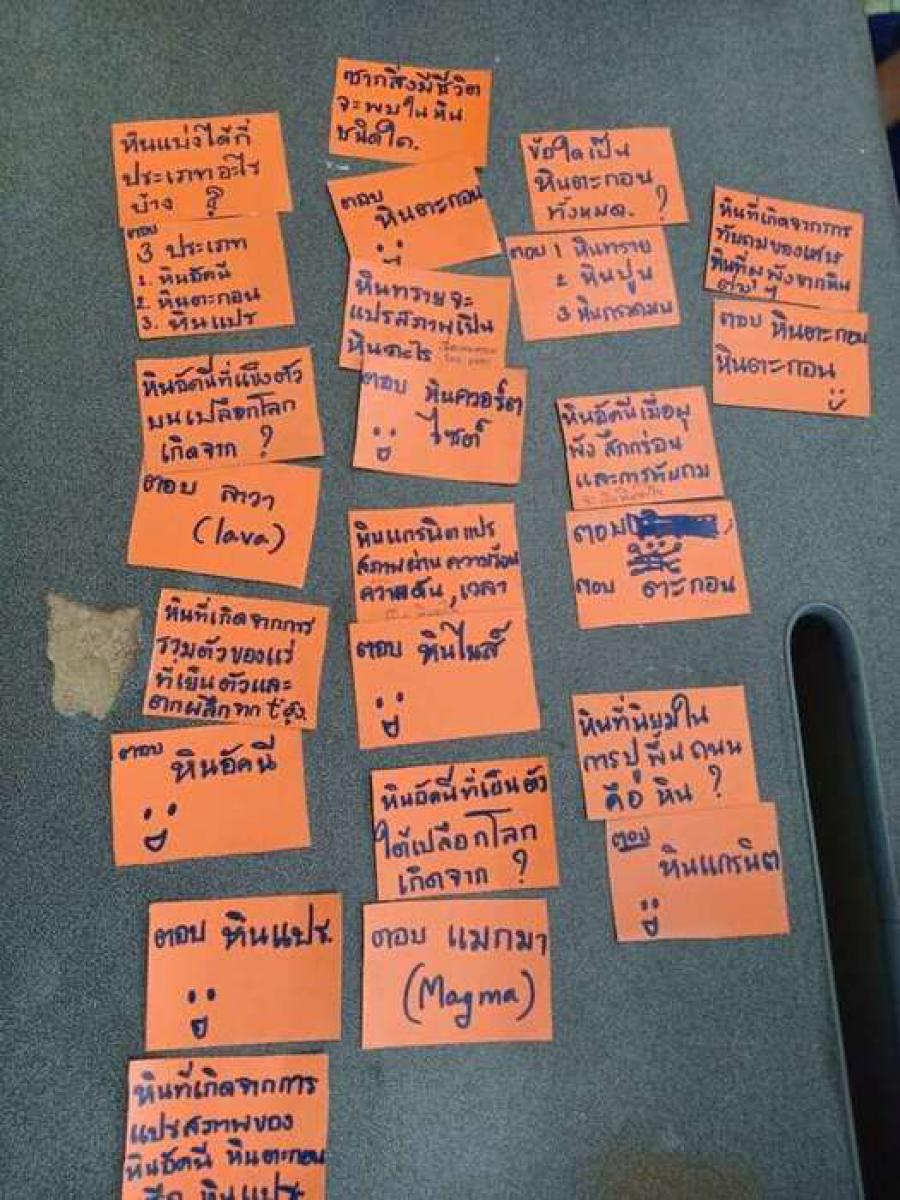 หินแบ่งได้กี่
ประเภท อะไร
บ้าง ?
ตอบ
3 ประเภท
1. หินอัคนี
2. หินตะกอน
3. หินแปร
หินอัคนีที่แข็งตัว
บนเปลือกโลก
เกิดจาก ?
ตอบ ลาวา
(lava)
หินที่เกิดจากการ
รวมตัวของแร่
ที่เย็นตัวและ
ตกผลึกจาก
ตอบ
หินอัคนี
ตอบ หินแปร.
หินที่เกิดจากการ
แปรสภาพของ
หินอัคนี หินตะกอน
หินแปร
ซากสิ่งมีชีวิต
จะพบใน หิน
ชนิดใด.
ตอบ
หินตะกอน
หินทรายจะ
แปรสภาพเป็น
หินอะไร
ตอบ หินควอร์ต
ไซต์
หินแกรนิตแปร
สภาพผ่าน ความร้อน
ความดัน, เวลา
ตอบ หินไนส์
หินอัคนีที่เย็นตัว
ใต้เปลือกโลก
เกิดจาก ?
ตอบ แมกมา
(Magma)
ข้อใดเป็น
หินตะกอน
ทั้งหมด. ?
ตอบ 1 หินทราย
2 หินปูน
3 หินกรวดมน
หินอัคนีเมื่อผุ
พัง สึกกร่อน
และการทับถม
ตอบ
ตอบ ตะกอน
หินที่นิยมใน
การปูพื้น ถนน
คือ หิน ?
ตอบ
หินแกรนิต
หินที่เกิดจากการ
ทับถมของเศษ
หินที่ผุพังจากหิน
ต่าง ๆ
ตอบ หินตะกอน
หินตะกอน